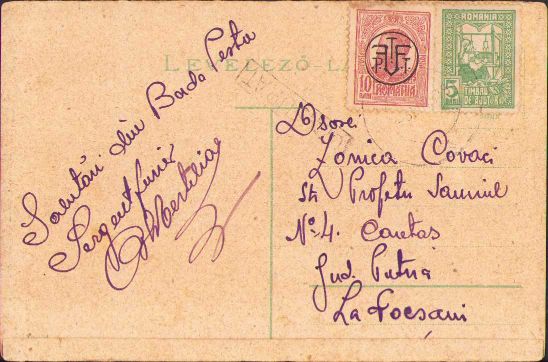 LEVELEZŐ-LA
ROMANIA
10 BANI
ROMANIA
5
TIMBRU
DE AJUTOR
Salutări din Buda Pesta
Sergent furier
D șoarei
Zonica Covaci
Str Profetu Samuil
Nº 4.
Jud. Putna
La Focsani